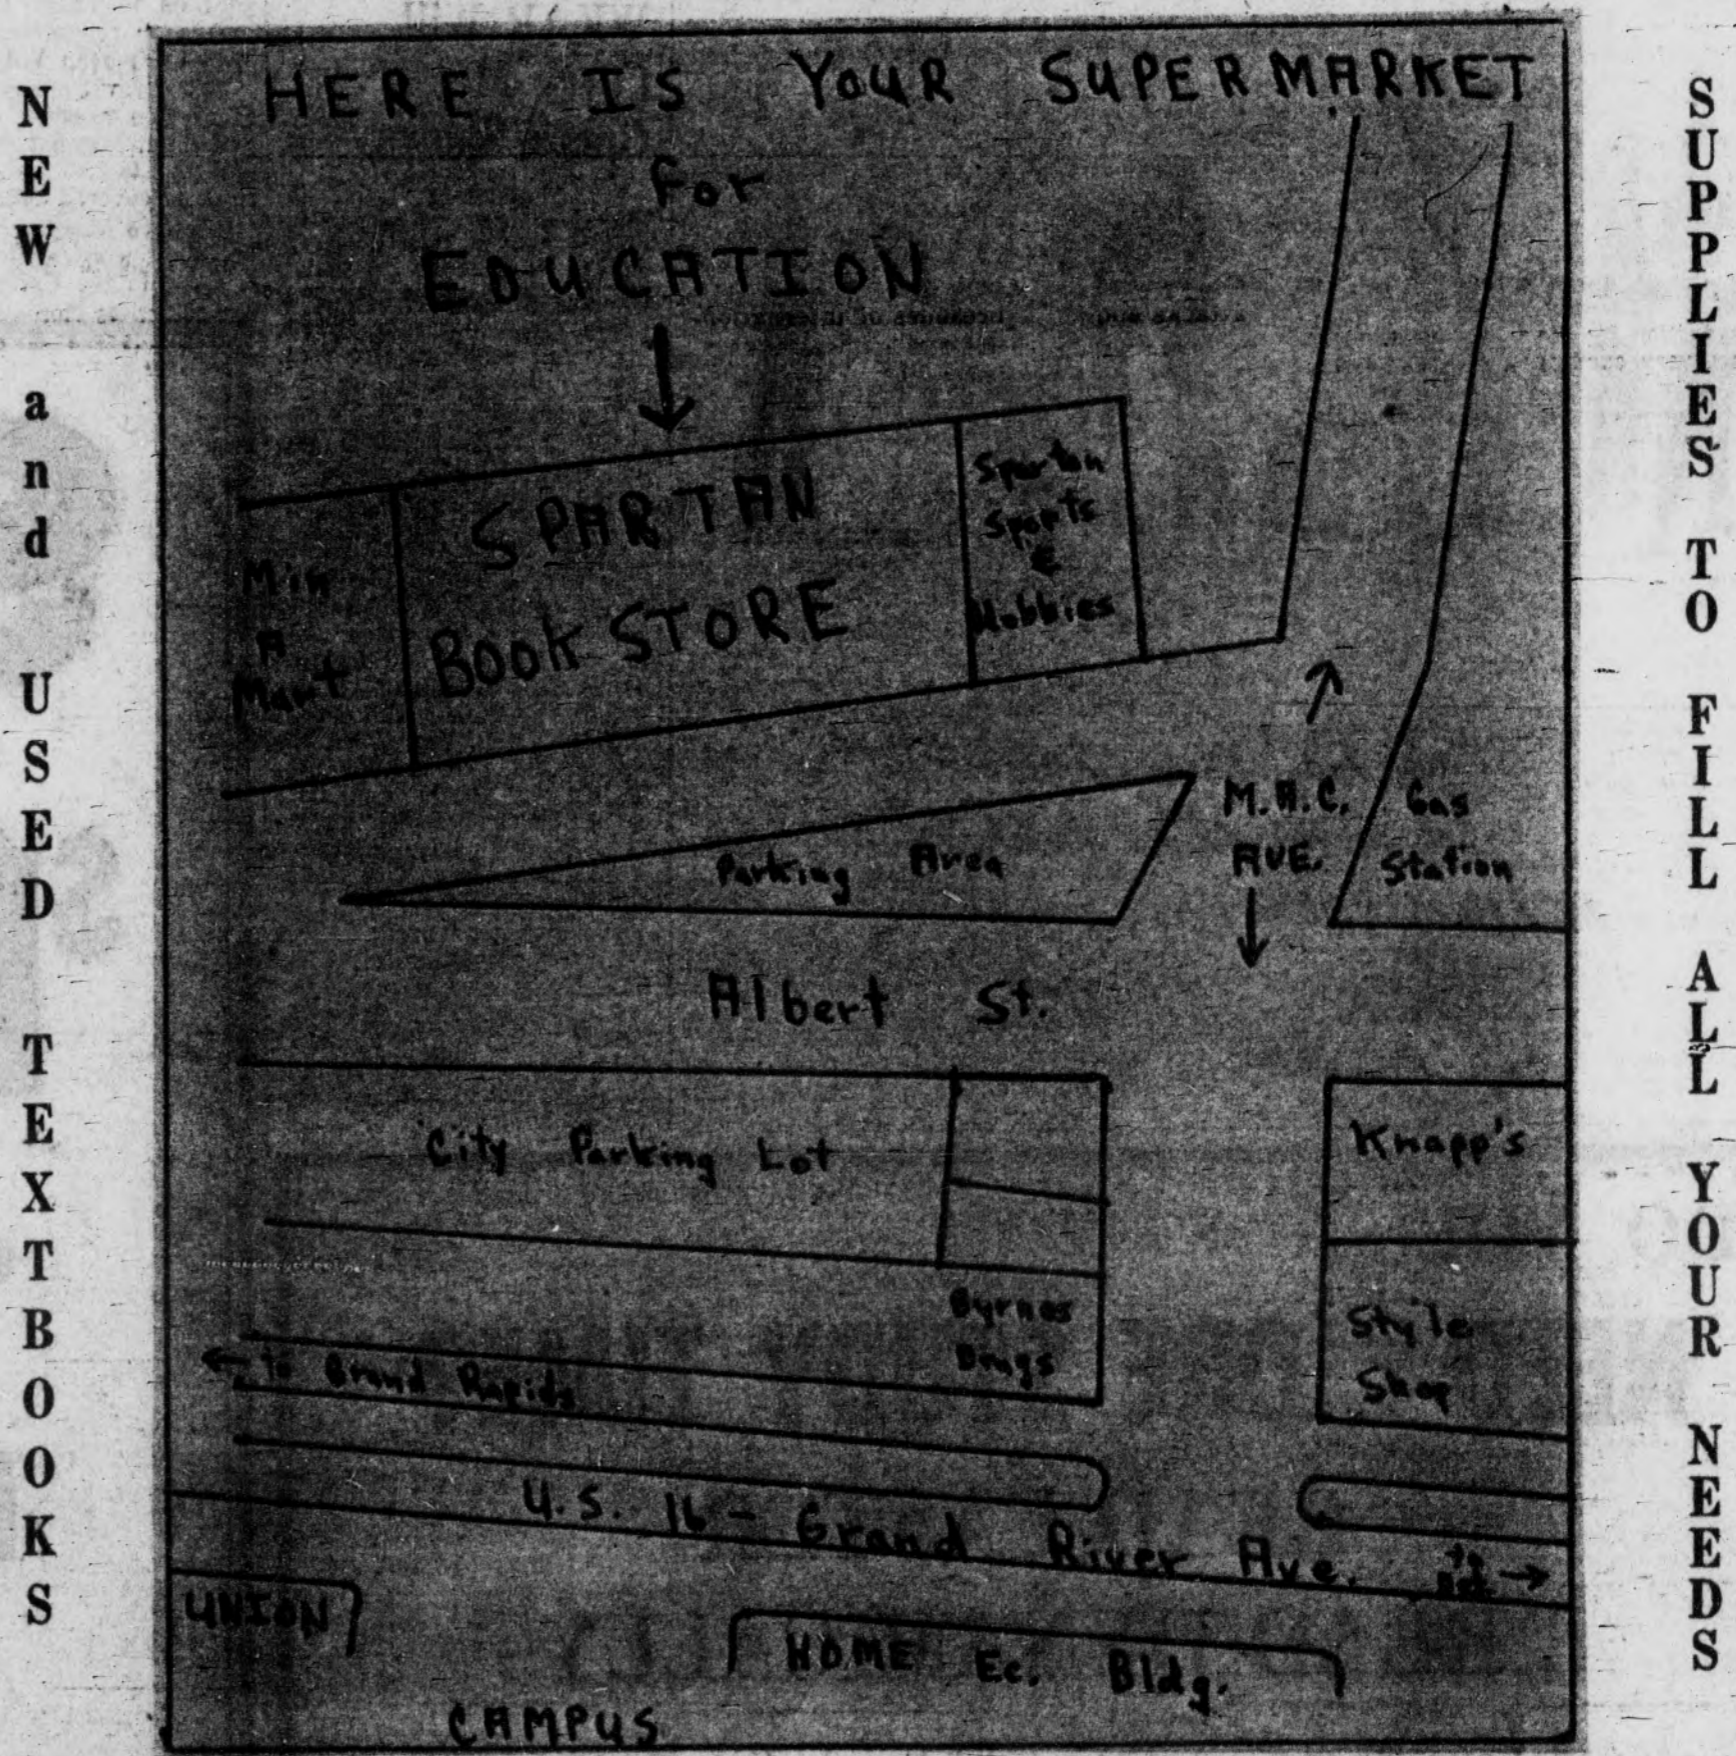 NEW and USED TEXTBOOKS
HERE IS YOUR SUPERMARKET
For
EDUCATION
SPARTAN
BOOK STORE
Min
A
Mart
Spartan
Sports
&
Hobbies
M.A.C.
AVE.
Gas
Station
Parking Area
Albert St.
City Parking Lot
Knapp's
Byrnes
Drugs
Style
Shop
← to Grand Rapids
U.S. 16 - Grand River Ave.
to
Det. →
UNION
HOME Ec. Bldg.
CAMPUS
SUPPLIES TO FILL ALL YOUR NEEDS